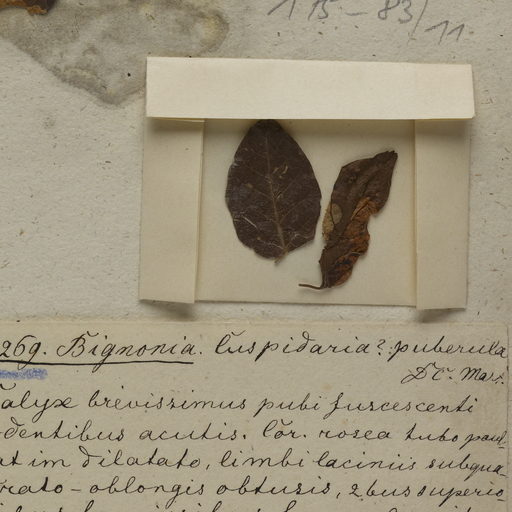 115-83/11.
269. Bignonia. Cuspidaria? puberula
DC. Mart.
Calyx brevissimus pubi fuscescenti
dentibus acutis. Cor. rosea tubo paul-
atim dilatato, limbi laciniis subqua-
rato-oblongis obtusis, 2bus superio-